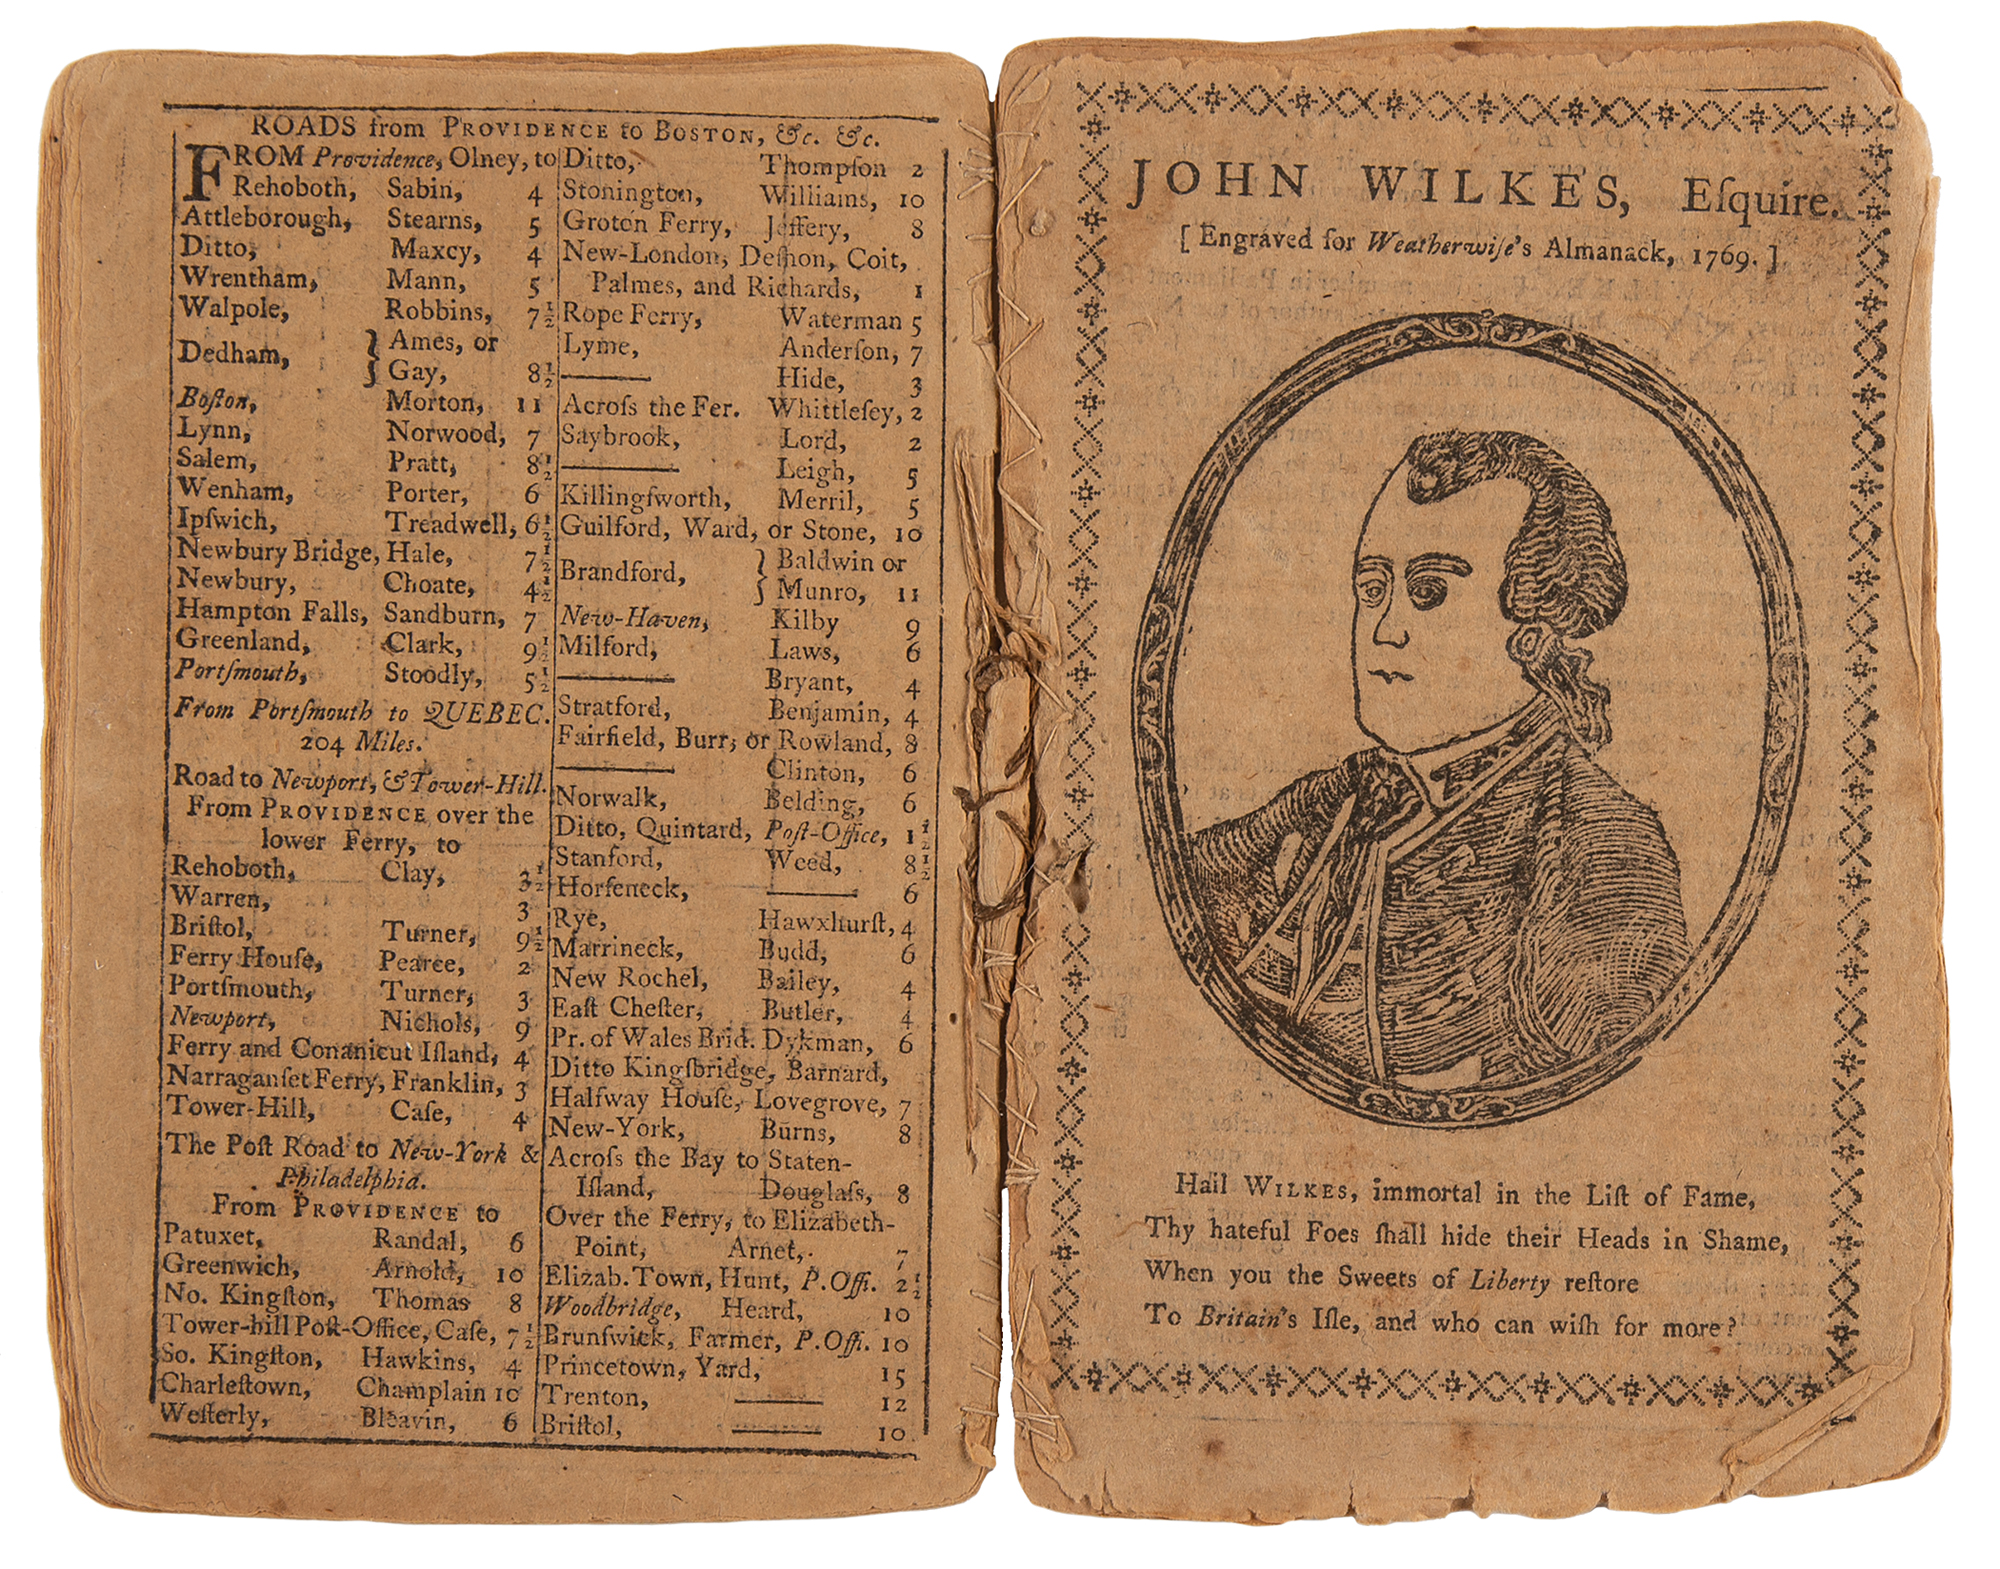 ROADS from PROVIDENCE to BOSTON, &c. &c.
FROM Providence, Olney, to
Rehoboth, Sabin, 4
Attleborough, Stearns, 5
Ditto, Maxcy, 4
Wrentham, Mann, 5
Walpole, Robbins, 7½
Dedham, } Ames, or
Gay, 8½
Boſton, Morton, 11
Lynn, Norwood, 7
Salem, Pratt, 8½
Wenham, Porter, 6
Ipſwich, Treadwell, 6½
Newbury Bridge, Hale, 7½
Newbury, Choate, 4½
Hampton Falls, Sandburn, 7
Greenland, Clark, 9½
Portſmouth, Stoodly, 5½
From Portſmouth to QUEBEC.
204 Miles.
Road to Newport, & Tower-Hill.
From PROVIDENCE over the
lower Ferry, to
Rehoboth, Clay, 3½
Warren, 3
Briſtol, Turner, 9½
Ferry Houſe, Pearce, 2
Portſmouth, Turner, 3
Newport, Nichols, 9
Ferry and Conanicut Iſland, 4
Narraganſet Ferry, Franklin, 3
Tower-Hill, Caſe, 4
The Poſt Road to New-York &
Philadelphia.
From PROVIDENCE to
Patuxet, Randal, 6
Greenwich, Arnold, 10
No. Kingſton, Thomas 8
Tower-hill Poſt-Office, Caſe, 7½
So. Kingſton, Hawkins, 4
Charleſtown, Champlain 10
Weſterly, Bleavin, 6
Ditto, Thompſon 2
Stonington, Williams, 10
Groton Ferry, Jeffery, 8
New-London, Deſhon, Coit,
Palmes, and Richards, 1
Rope Ferry, Waterman 5
Lyme, Anderſon, 7
—— Hide, 3
Acroſs the Fer. Whittleſey, 2
Saybrook, Lord, 2
—— Leigh, 5
Killingſworth, Merril, 5
Guilford, Ward, or Stone, 10
Brandford, } Baldwin or
Munro, 11
New-Haven, Kilby 9
Milford, Laws, 6
—— Bryant, 4
Stratford, Benjamin, 4
Fairfield, Burr, or Rowland, 8
—— Clinton, 6
Norwalk, Belding, 6
Ditto, Quintard, Poſt-Office, 1½
Stanford, Weed, 8½
Horſeneck, —— 6
Rye, Hawxhurſt, 4
Marrineck, Budd, 6
New Rochel, Bailey, 4
Eaſt Cheſter, Butler, 4
Pr. of Wales Brid. Dykman, 6
Ditto Kingſbridge, Barnard,
Halfway Houſe, Lovegrove, 7
New-York, Burns, 8
Acroſs the Bay to Staten-
Iſland, Douglaſs, 8
Over the Ferry, to Elizabeth-
Point, Arnet, 7
Elizab. Town, Hunt, P. Offi. 2½
Woodbridge, Heard, 10
Brunſwick, Farmer, P. Offi. 10
Princetown, Yard, 15
Trenton, —— 12
Briſtol, —— 10
JOHN WILKES, Eſquire.
[ Engraved for Weatherwiſe's Almanack, 1769. ]
Hail WILKES, immortal in the Liſt of Fame,
Thy hateful Foes ſhall hide their Heads in Shame,
When you the Sweets of Liberty reſtore
To Britain's Iſle, and who can wiſh for more?